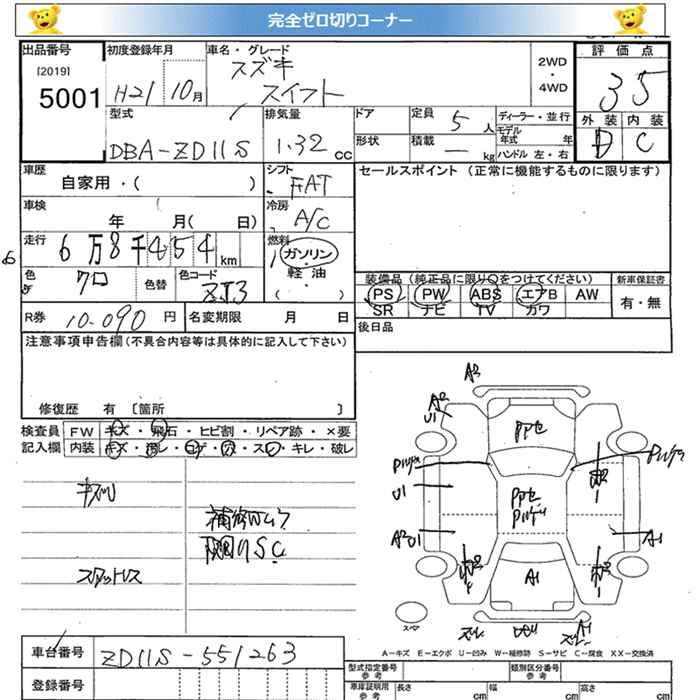 完全ゼロ切りコーナー
出品番号 初度登録年月 車名・グレード 評価点
[2019] スズキ 2WD
5001 H21 10月 スイフト ・ 35
4WD
型式 排気量 ドア 定員 5人 ディーラー・並行 外装 内装
DBA-ZD11S 1.32 cc 形状 積載 — kg モデル年式 年 D C
ハンドル 左・右
車歴 シフト セールスポイント (正常に機能するものに限ります)
自家用・( ) FAT
車検 冷房
年 月( 日) A/C
走行 6万8千454km 燃料
ガソリン
色 クロ 色替 色コード ZJ3 軽油
( )
装備品 (純正品に限り○をつけてください) 新車保証書
PS PW ABS エアB AW 有・無
SR ナビ TV カワ
R券 10.090 円 名変期限 月 日 後日品
注意事項申告欄 (不具合内容等は具体的に記入して下さい)
修復歴 有 [箇所 ]
検査員 FW キズ・飛石・ヒビ割・リペア跡・×要
記入欄 内装 キズ・汚レ・コゲ・穴・スレ・キレ・破レ
A3
A2
U1
U1
A2 U1
A1
A1
スペア
A1
A-キズ E-エクボ U-凹み W-補修跡 S-サビ C-腐食 XX-交換済
車台番号 ZD11S-551263
登録番号
型式指定番号 類別区分番号
参考 参考
車庫証明用 長さ 幅 高さ
参考 cm cm cm